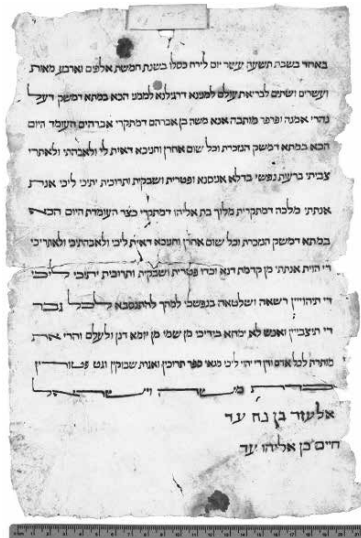 באחד בשבת תשעה עשר יום לירח כסלו בשנת חמשת אלפים וארבע מאות
ועשרים ושתים לבריאת עולם למנינא דרגילנא לממני הכא במתא דמשק דעל
נהרי אמנה ופרפר מותבה אנא משה בן אברהם דמתקרי אברהים העומד היום
הכא במתא דמשק הנזכרת וכל שום אחרן וחניכא דאית לי ולאבהתי ולאתרי
צביתי ברעות נפשי בדלא אניסנא ופטרית ושבקית ותרוכית יתיכי ליכי אנת
אנתתי מלכה דמתקרית מלוך בת אליהו דמתקרי העומדת היום הכא
במתא דמשק הנזכרת וכל שום אחרן וחניכא דאית ליכי ולאבהתיכי ולאתריכי
די הוית אנתתי מן קדמת דנא וכדו פטרית ושבקית ותרוכית יתיכי ליכי
די תיהוייין רשאה ושלטאה בנפשיכי למהך להתנסבא לכל גבר
די תיצבייין ואנש לא ימחא בידיכי מן שמי מן יומא דנן ולעלם והרי את
מותרת לכל אדם ודן די יהוי ליכי מנאי ספר תרוכין ואגרת שבוקין וגט פטורין
כדת משה וישראל
אלעזר בן נח עד
חיים בן אליהו עד